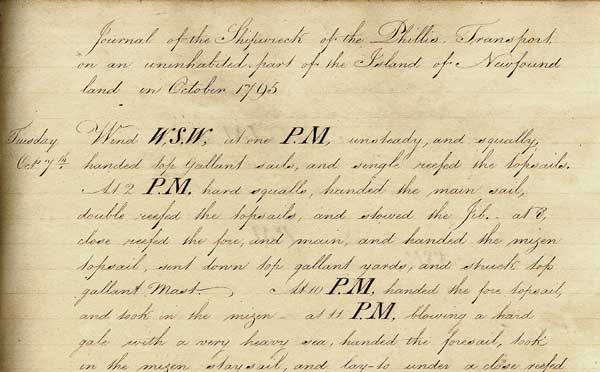 Journal of the Shipwreck of the Phillis Transport,
on an uninhabited, part of the Island of Newfound
land in October, 1795
Tuesday
Oct. 7th.
Wind W.S.W, at one P.M, unsteady, and squally,
handed top gallant sails, and single reefed the topsails.
At 2 P.M, hard squalls, handed the main sail,
double reefed the topsails, and stowed the Jib. - at 8,
close reefed the fore, and main, and handed the mizen
topsail, sent down top gallant yards, and struck top
gallant Mast. At 10 P.M, handed the fore topsail,
and took in the mizen - at 11 P.M, blowing a hard
gale with a very heavy sea, handed the foresail, took
in the mizen staysail, and lay-to under a close reefed